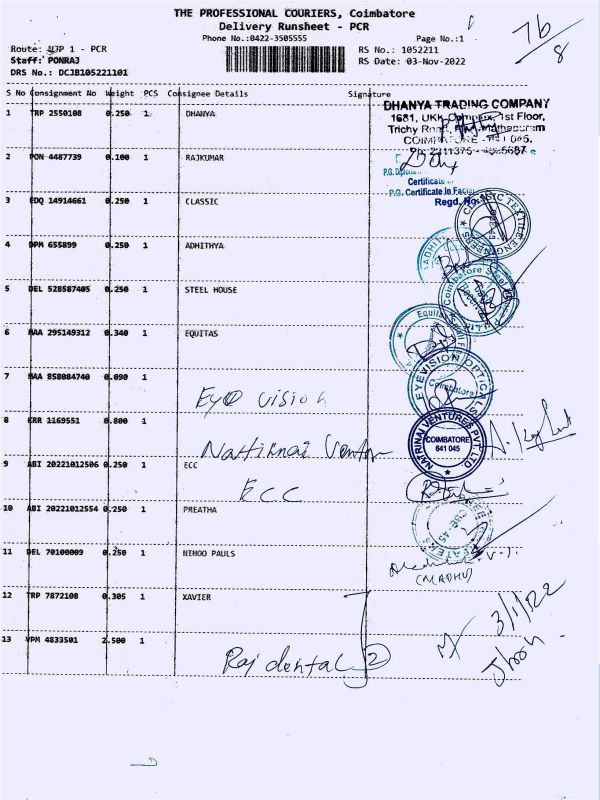 THE PROFESSIONAL COURIERS, Coimbatore
Delivery Runsheet - PCR
Phone No.:0422-3505555
Page No.:1
76/8
Route: ALTP 1 - PCR
RS No.: 1052211
Staff: PONRAJ
RS Date: 03-Nov-2022
DRS No.: DCJB105221101
S No Consignment No Weight PCS Consignee Details Signature
1 TRP 2550108 0.250 1 DHANYA
DHANYA TRADING COMPANY
1681, UKK Complex, 1st Floor,
COIMBATORE
2 PON 4487739 0.100 1 RAJKUMAR
Certificate
P.G. Certificate In Facial
Regd. No.
3 EDQ 14914661 0.250 1 CLASSIC
CLASSIC TEXTILE ENGINEERS
4 DPM 655899 0.250 1 ADHITHYA
ADHITH
5 DEL 528587405 0.250 1 STEEL HOUSE
Coimbatore Steel
6 MAA 295149312 0.340 1 EQUITAS
Equitas
7 MAA 858084740 0.090 1
Eye vision
EYEVISION OPTICALS
Coimbatore
8 ERR 1169551 0.800 1
Nattirnai Ventur
NATRINAI VENTURES PVT LTD
COIMBATORE
641 045
9 ABI 20221012506 0.250 1 ECC
ECC
10 ABI 20221012554 0.250 1 PREATHA
CBE-45
11 DEL 70100009 0.250 1 NINOO PAULS
(MADHU)
12 TRP 7872108 0.305 1 XAVIER
3/11/22
13 VPM 4833501 2.500 1
Raj dental 2